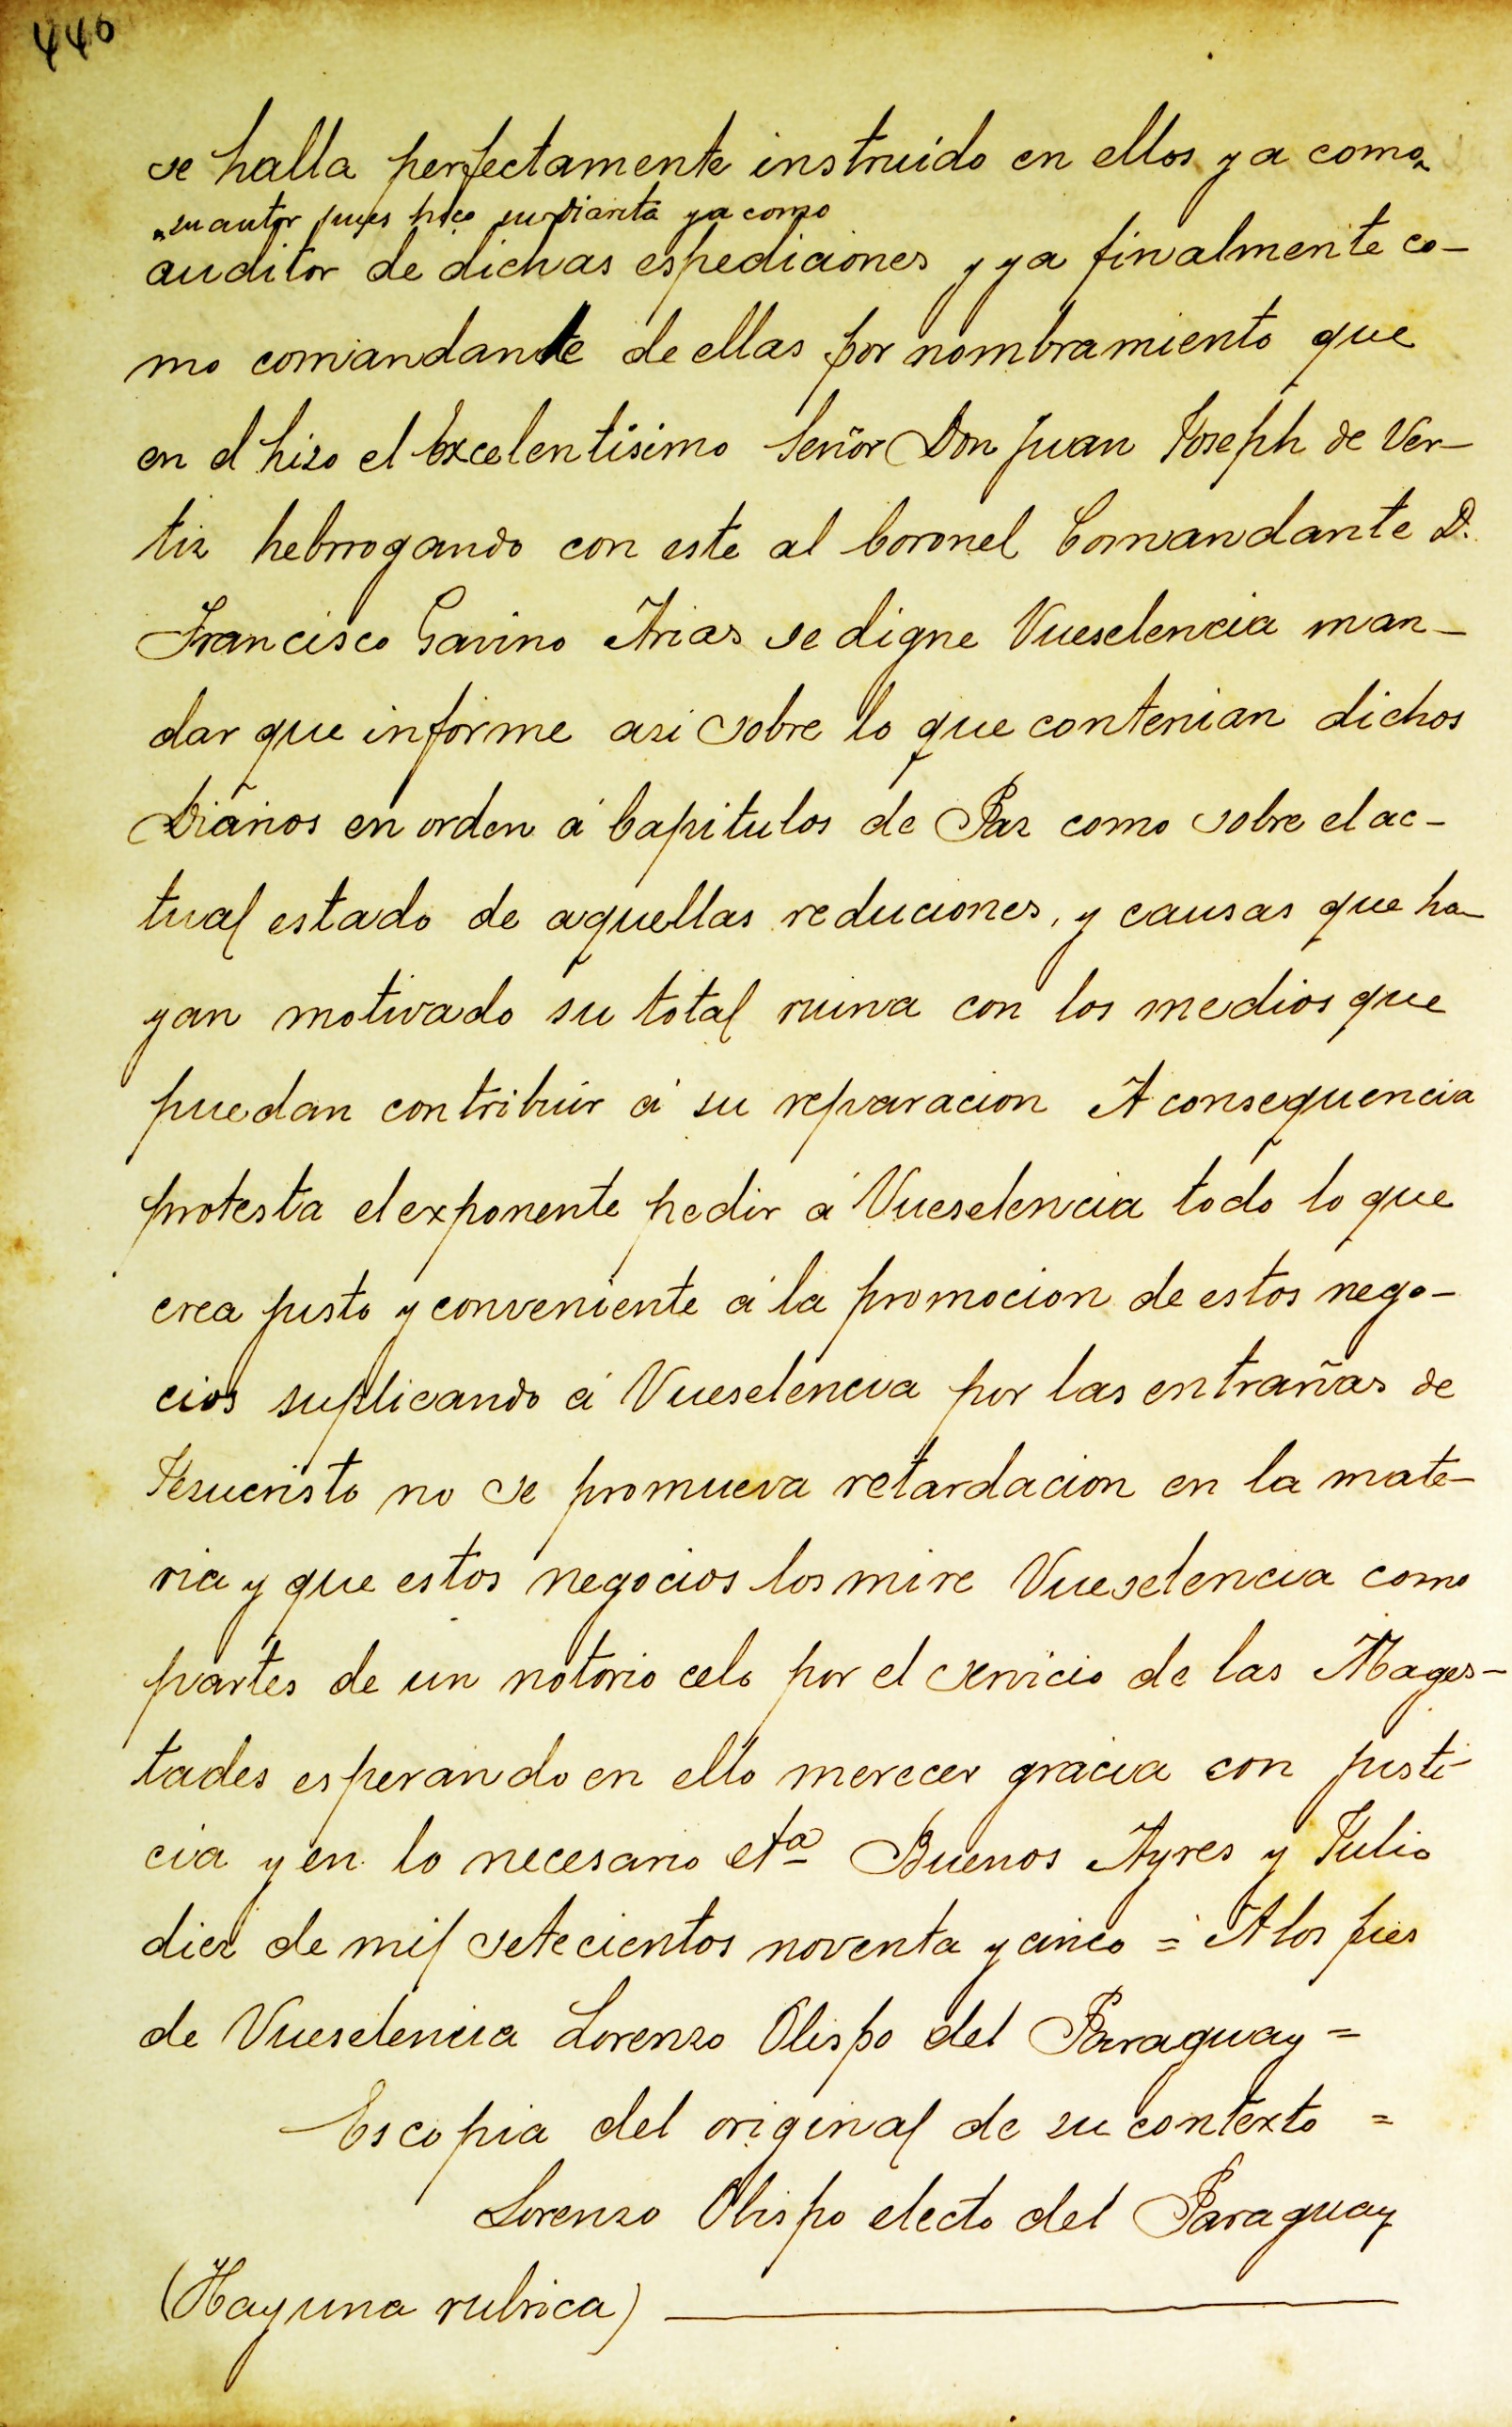 440
se halla perfectamente instruido en ellos ya como
su autor pues hizo su diarista ya como
auditor de dichas espediciones y ya finalmente co-
mo comandante de ellas por nombramiento que
en el hizo el Excelentisimo Señor Don Juan Joseph de Ver-
tiz hebrrogando con este al Coronel Comandante D.
Francisco Gavino Arias se digne Vueselencia man-
dar que informe asi sobre lo que contenian dichos
Diarios en orden á Capitulos de Paz como sobre el ac-
tual estado de aquellas reduciones, y causas que ha-
yan motivado su total ruina con los medios que
puedan contribuir á su reparacion A consequencia
protesta el exponente pedir á Vueselencia todo lo que
crea justo y conveniente á la promocion de estos nego-
cios suplicando á Vueselencia por las entrañas de
Jesucristo no se promueva retardacion en la mate-
ria y que estos negocios los mire Vueselencia como
partes de un notorio celo por el servicio de las Mages-
tades esperando en ello merecer gracia con justi-
cia y en lo necesario etª Buenos Ayres y Julio
diez de mil setecientos noventa y cinco = A los pies
de Vueselencia Lorenzo Obispo del Paraguay =
Es copia del original de su contexto =
Lorenzo Obispo electo del Paraguay
(Hay una rubrica)